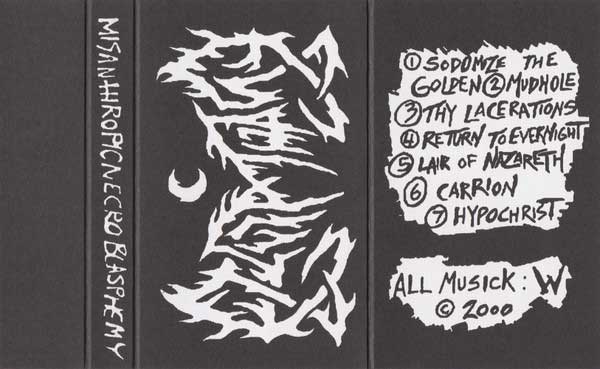 MISANTHROPIC NECRO BLASPHEMY
① SODOMIZE THE
GOLDEN ② MUDHOLE
③ THY LACERATIONS
④ RETURN TO EVERNIGHT
⑤ LAIR OF NAZARETH
⑥ CARRION
⑦ HYPOCHRIST
ALL MUSICK : W
© 2000